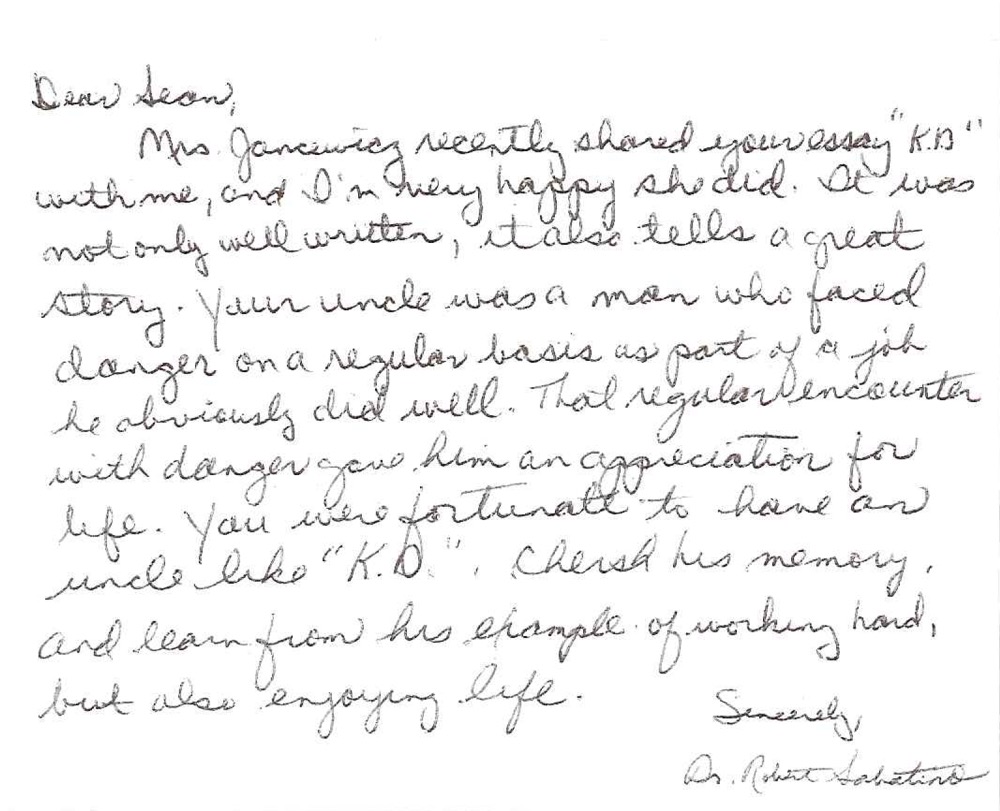 Dear Sean,
Mrs. Jancewicz recently shared your essay "K.D"
with me, and I'm very happy she did. It was
not only well written, it also tells a great
story. Your uncle was a man who faced
danger on a regular basis as part of a job
he obviously did well. That regular encounter
with danger gave him an appreciation for
life. You were fortunate to have an
uncle like "K.D.". Cherish his memory,
and learn from his example of working hard,
but also enjoying life.
Sincerely,
Dr. Robert Sabatino